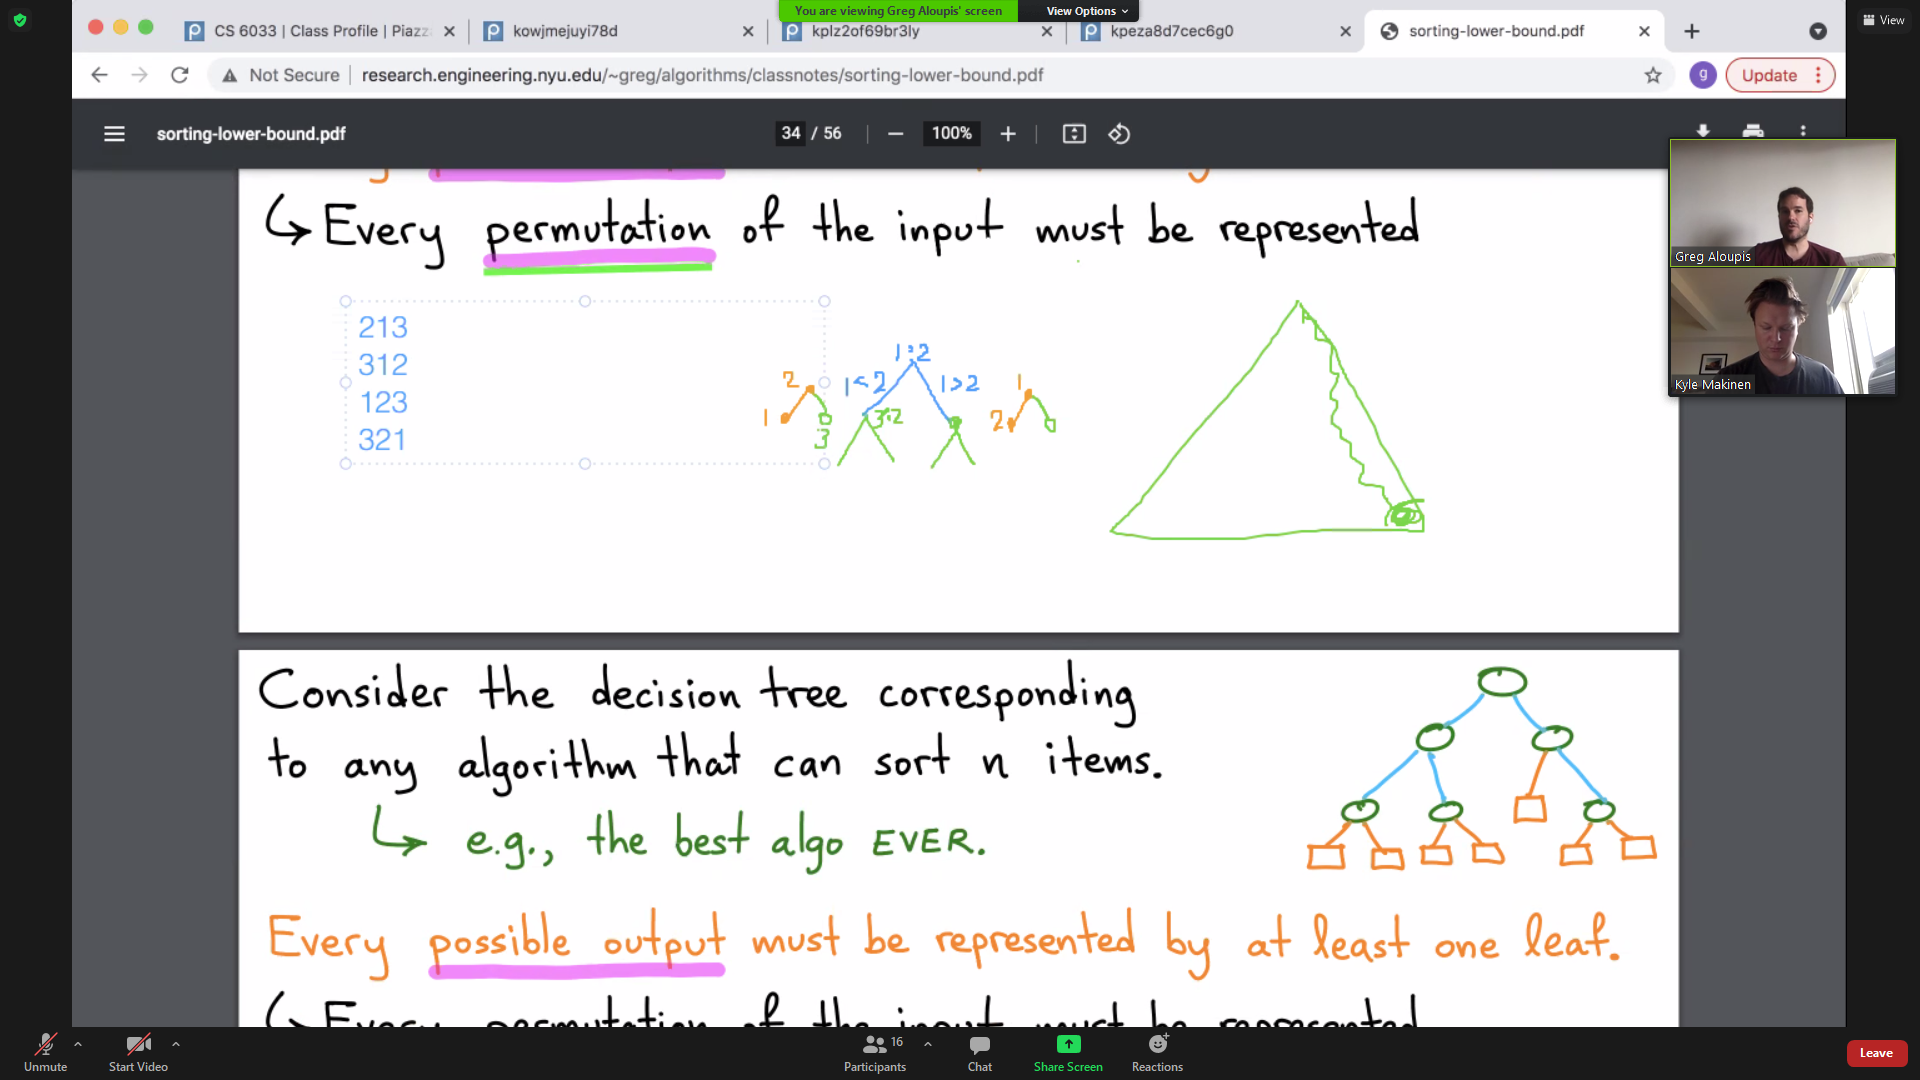 You are viewing Greg Aloupis' screen
View Options
View
CS 6033 | Class Profile | Piazz
kowjmejuyi78d
kplz2of69br3ly
kpeza8d7cec6g0
sorting-lower-bound.pdf
Not Secure
research.engineering.nyu.edu/~greg/algorithms/classnotes/sorting-lower-bound.pdf
g
Update
sorting-lower-bound.pdf
34 / 56
100%
Greg Aloupis
Kyle Makinen
Every permutation of the input must be represented
213
312
123
321
1:2
1<2
1>2
3:2
2
1
3
1
2
Consider the decision tree corresponding
to any algorithm that can sort n items.
e.g., the best algo EVER.
Every possible output must be represented by at least one leaf.
Every permutation of the input must be represented
Unmute
Start Video
Participants
16
Chat
Share Screen
Reactions
Leave